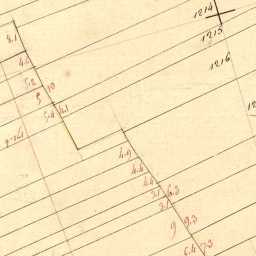 1214
1215
1216
8.1
4.6
5.2
10
5
5.4
4.1
12
4.9
4.4
4.4
2.1
6.3
2.1
9
9.3
6.4
7.3